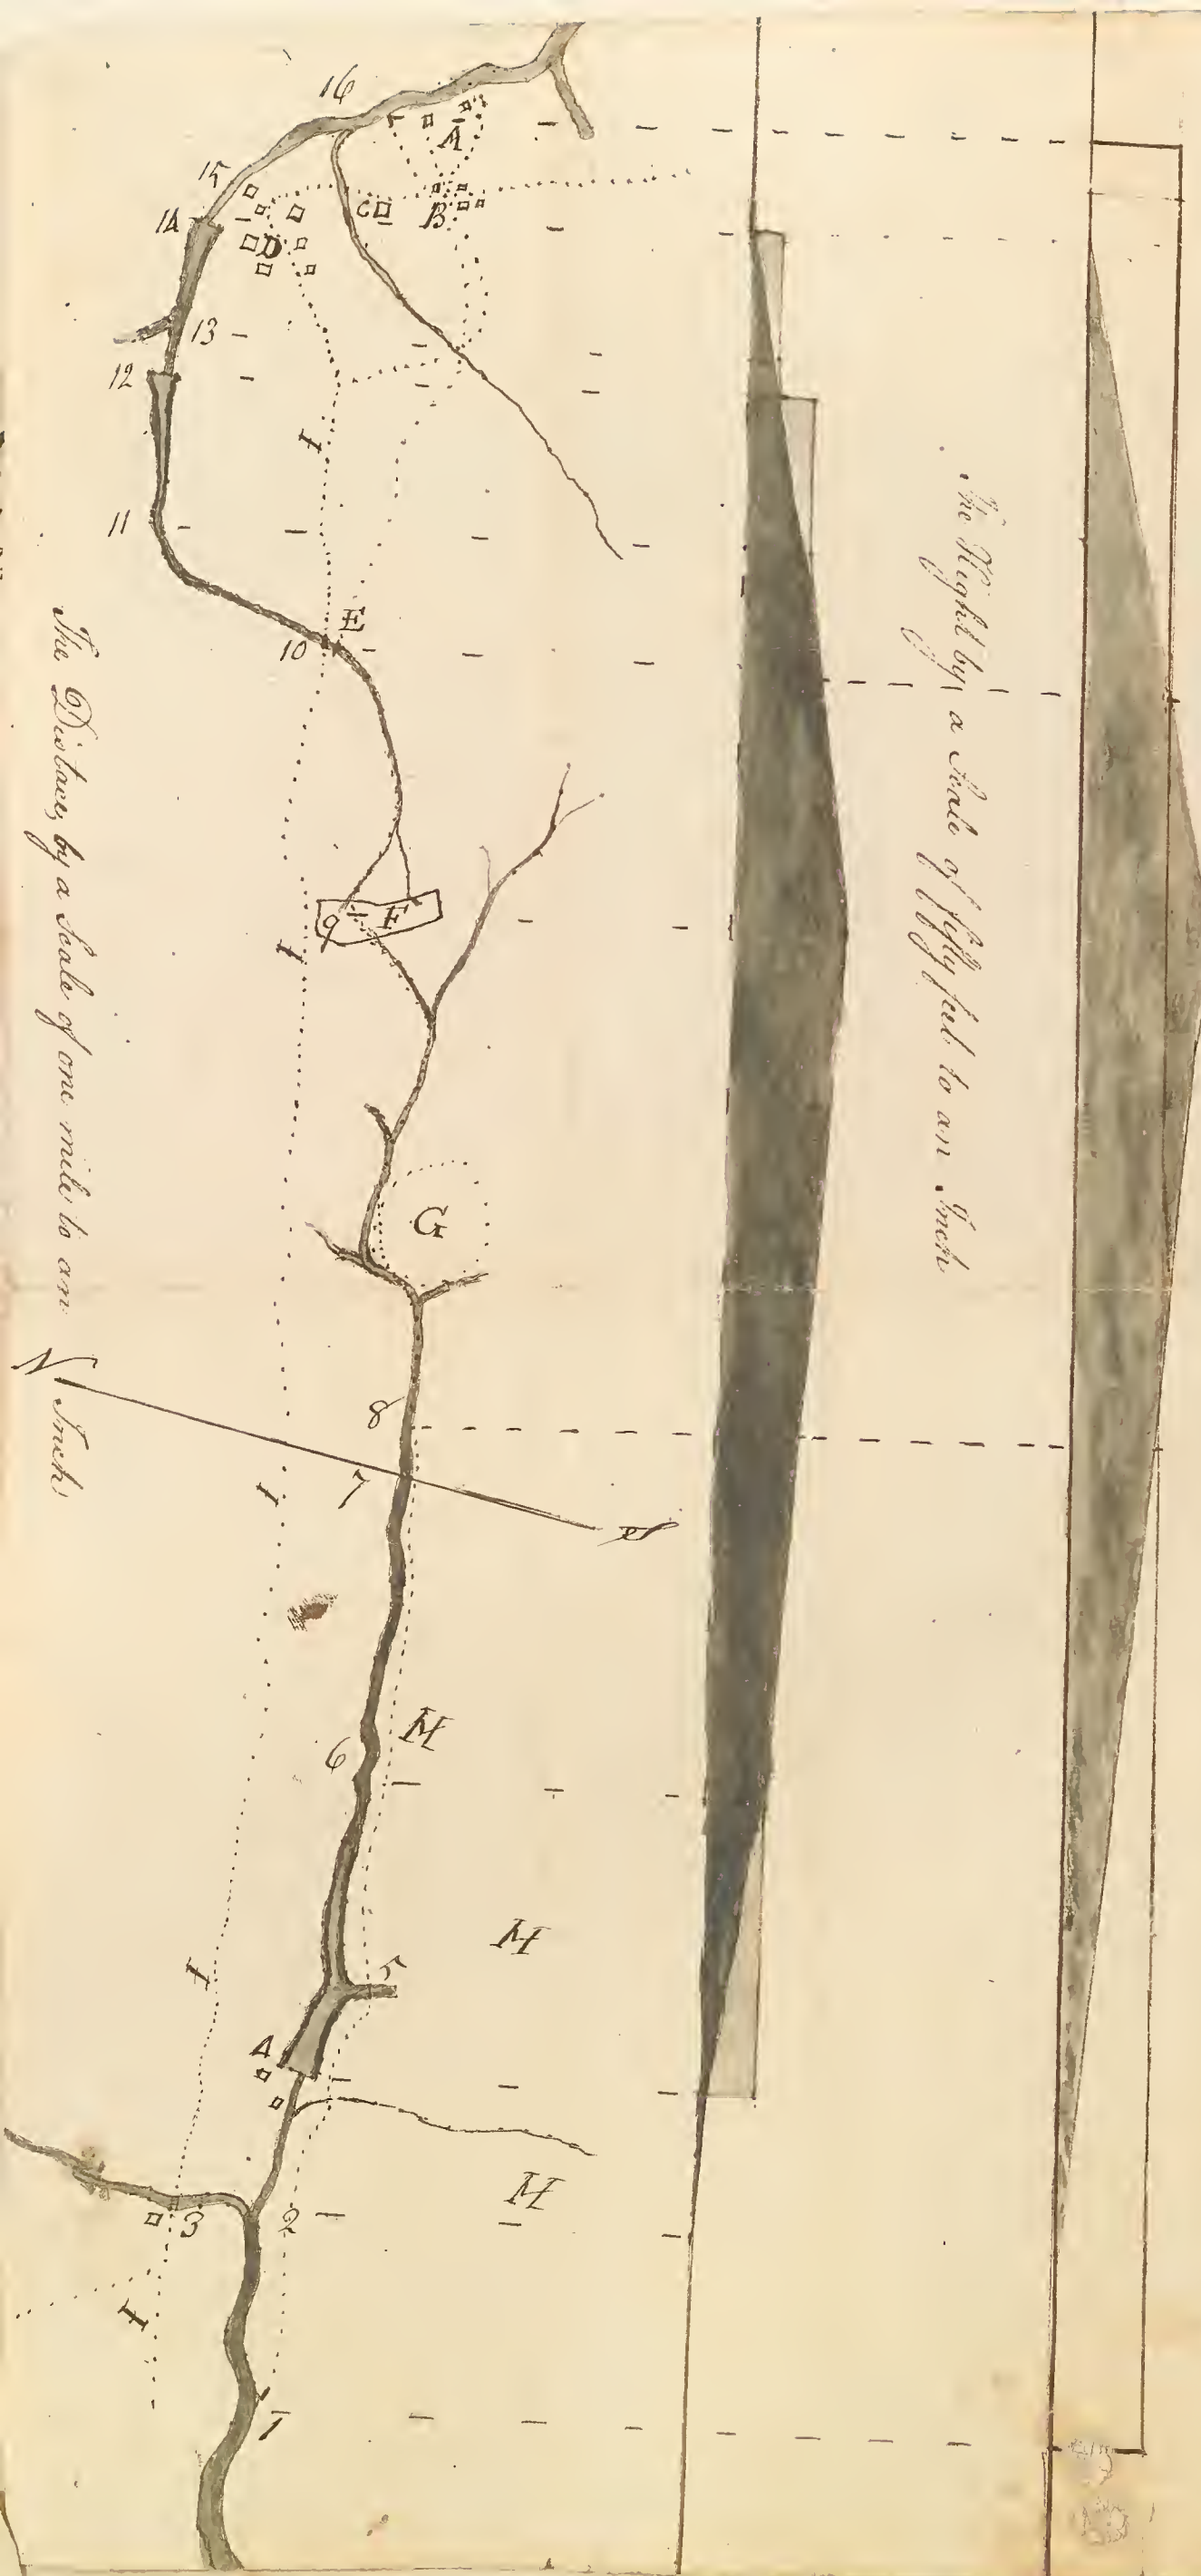 16
A
15
C
B
14
D
13
12
I
11
E
10
9
F
I
G
N
8
7
S
I
M
6
M
5
I
4
M
3
2
I
1
The Distances by a Scale of one mile to an Inch
The Hight by a Scale of fifty feet to an Inch